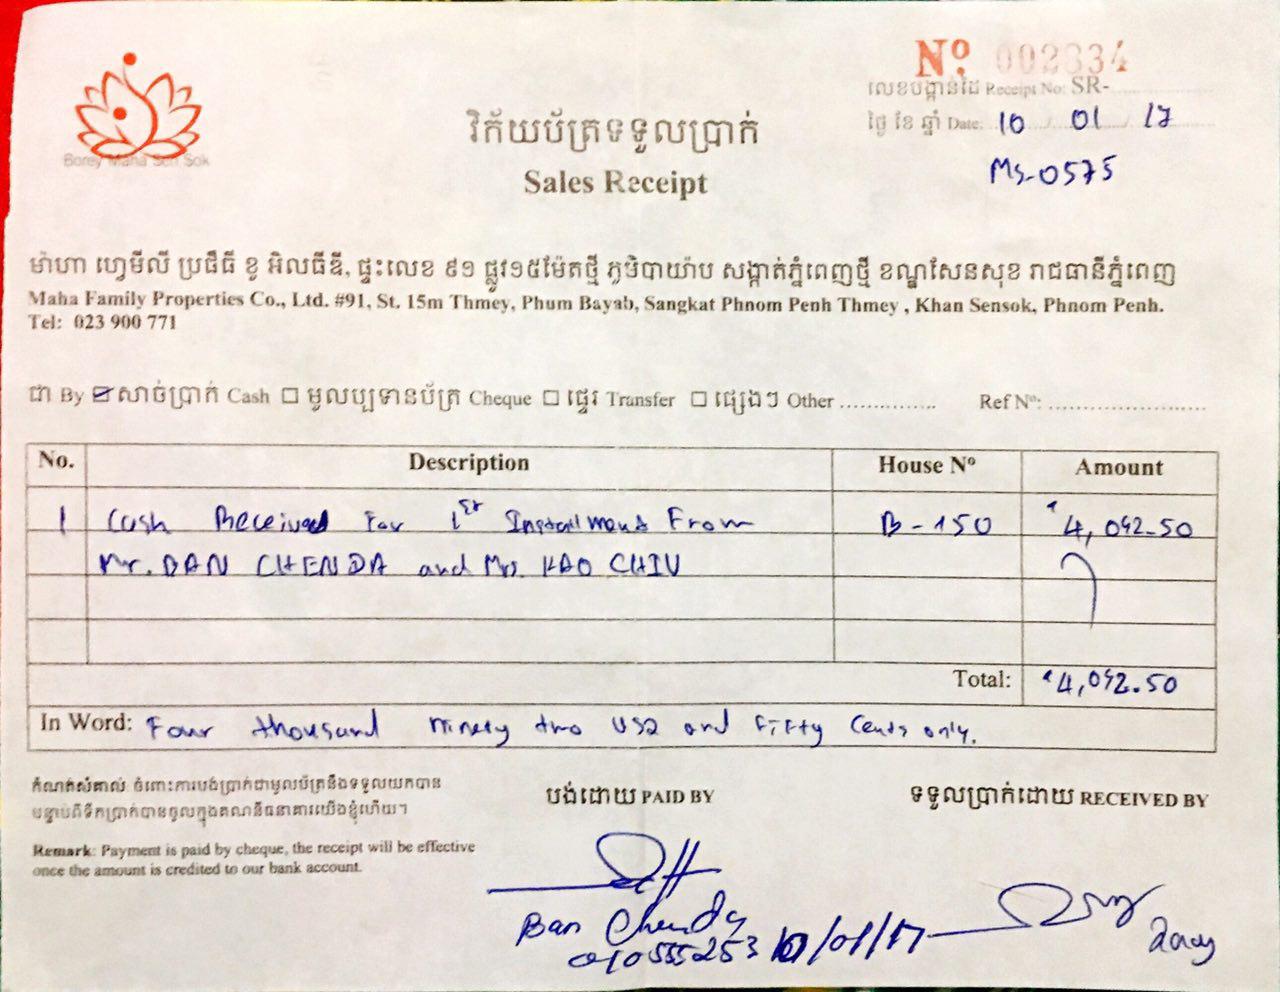 Nº 002834
Borey Maha Sen Sok
លេខបង្កាន់ដៃ Receipt No: SR-
ថ្ងៃ ខែ ឆ្នាំ Date: 10 / 01 / 17
MS-0575
វិក័យប័ត្រទទួលប្រាក់
Sales Receipt
ម៉ាហា ហ្វេមីលី ប្រផឹធី ខូ អិលធីឌី, ផ្ទះលេខ ៩១ ផ្លូវ១៥ម៉ែតថ្មី ភូមិបាយ៉ាប សង្កាត់ភ្នំពេញថ្មី ខណ្ឌសែនសុខ រាជធានីភ្នំពេញ
Maha Family Properties Co., Ltd. #91, St. 15m Thmey, Phum Bayab, Sangkat Phnom Penh Thmey , Khan Sensok, Phnom Penh.
Tel: 023 900 771
ជា By ☑ សាច់ប្រាក់ Cash ☐ មូលប្បទានប័ត្រ Cheque ☐ ផ្ទេរ Transfer ☐ ផ្សេងៗ Other ............... Ref Nº: .......................
No. Description House Nº Amount
1 Cash Received For 1st Installment From B-150 $4,092.50
Mr. BAN CHENDA and Mrs. KAO CHIV
Total: $4,092.50
In Word: Four thousand ninety two USD and Fifty Cents only.
កំណត់សំគាល់ ចំពោះការបង់ប្រាក់ជាមូលប័ត្រនឹងទទួលយកបាន
បន្ទាប់ពីទឹកប្រាក់បានចូលក្នុងគណនីធនាគារយើងខ្ញុំហើយ។
Remark: Payment is paid by cheque, the receipt will be effective
once the amount is credited to our bank account.
បង់ដោយ PAID BY
ទទួលប្រាក់ដោយ RECEIVED BY
Ban Chenda
010555253 10/01/17